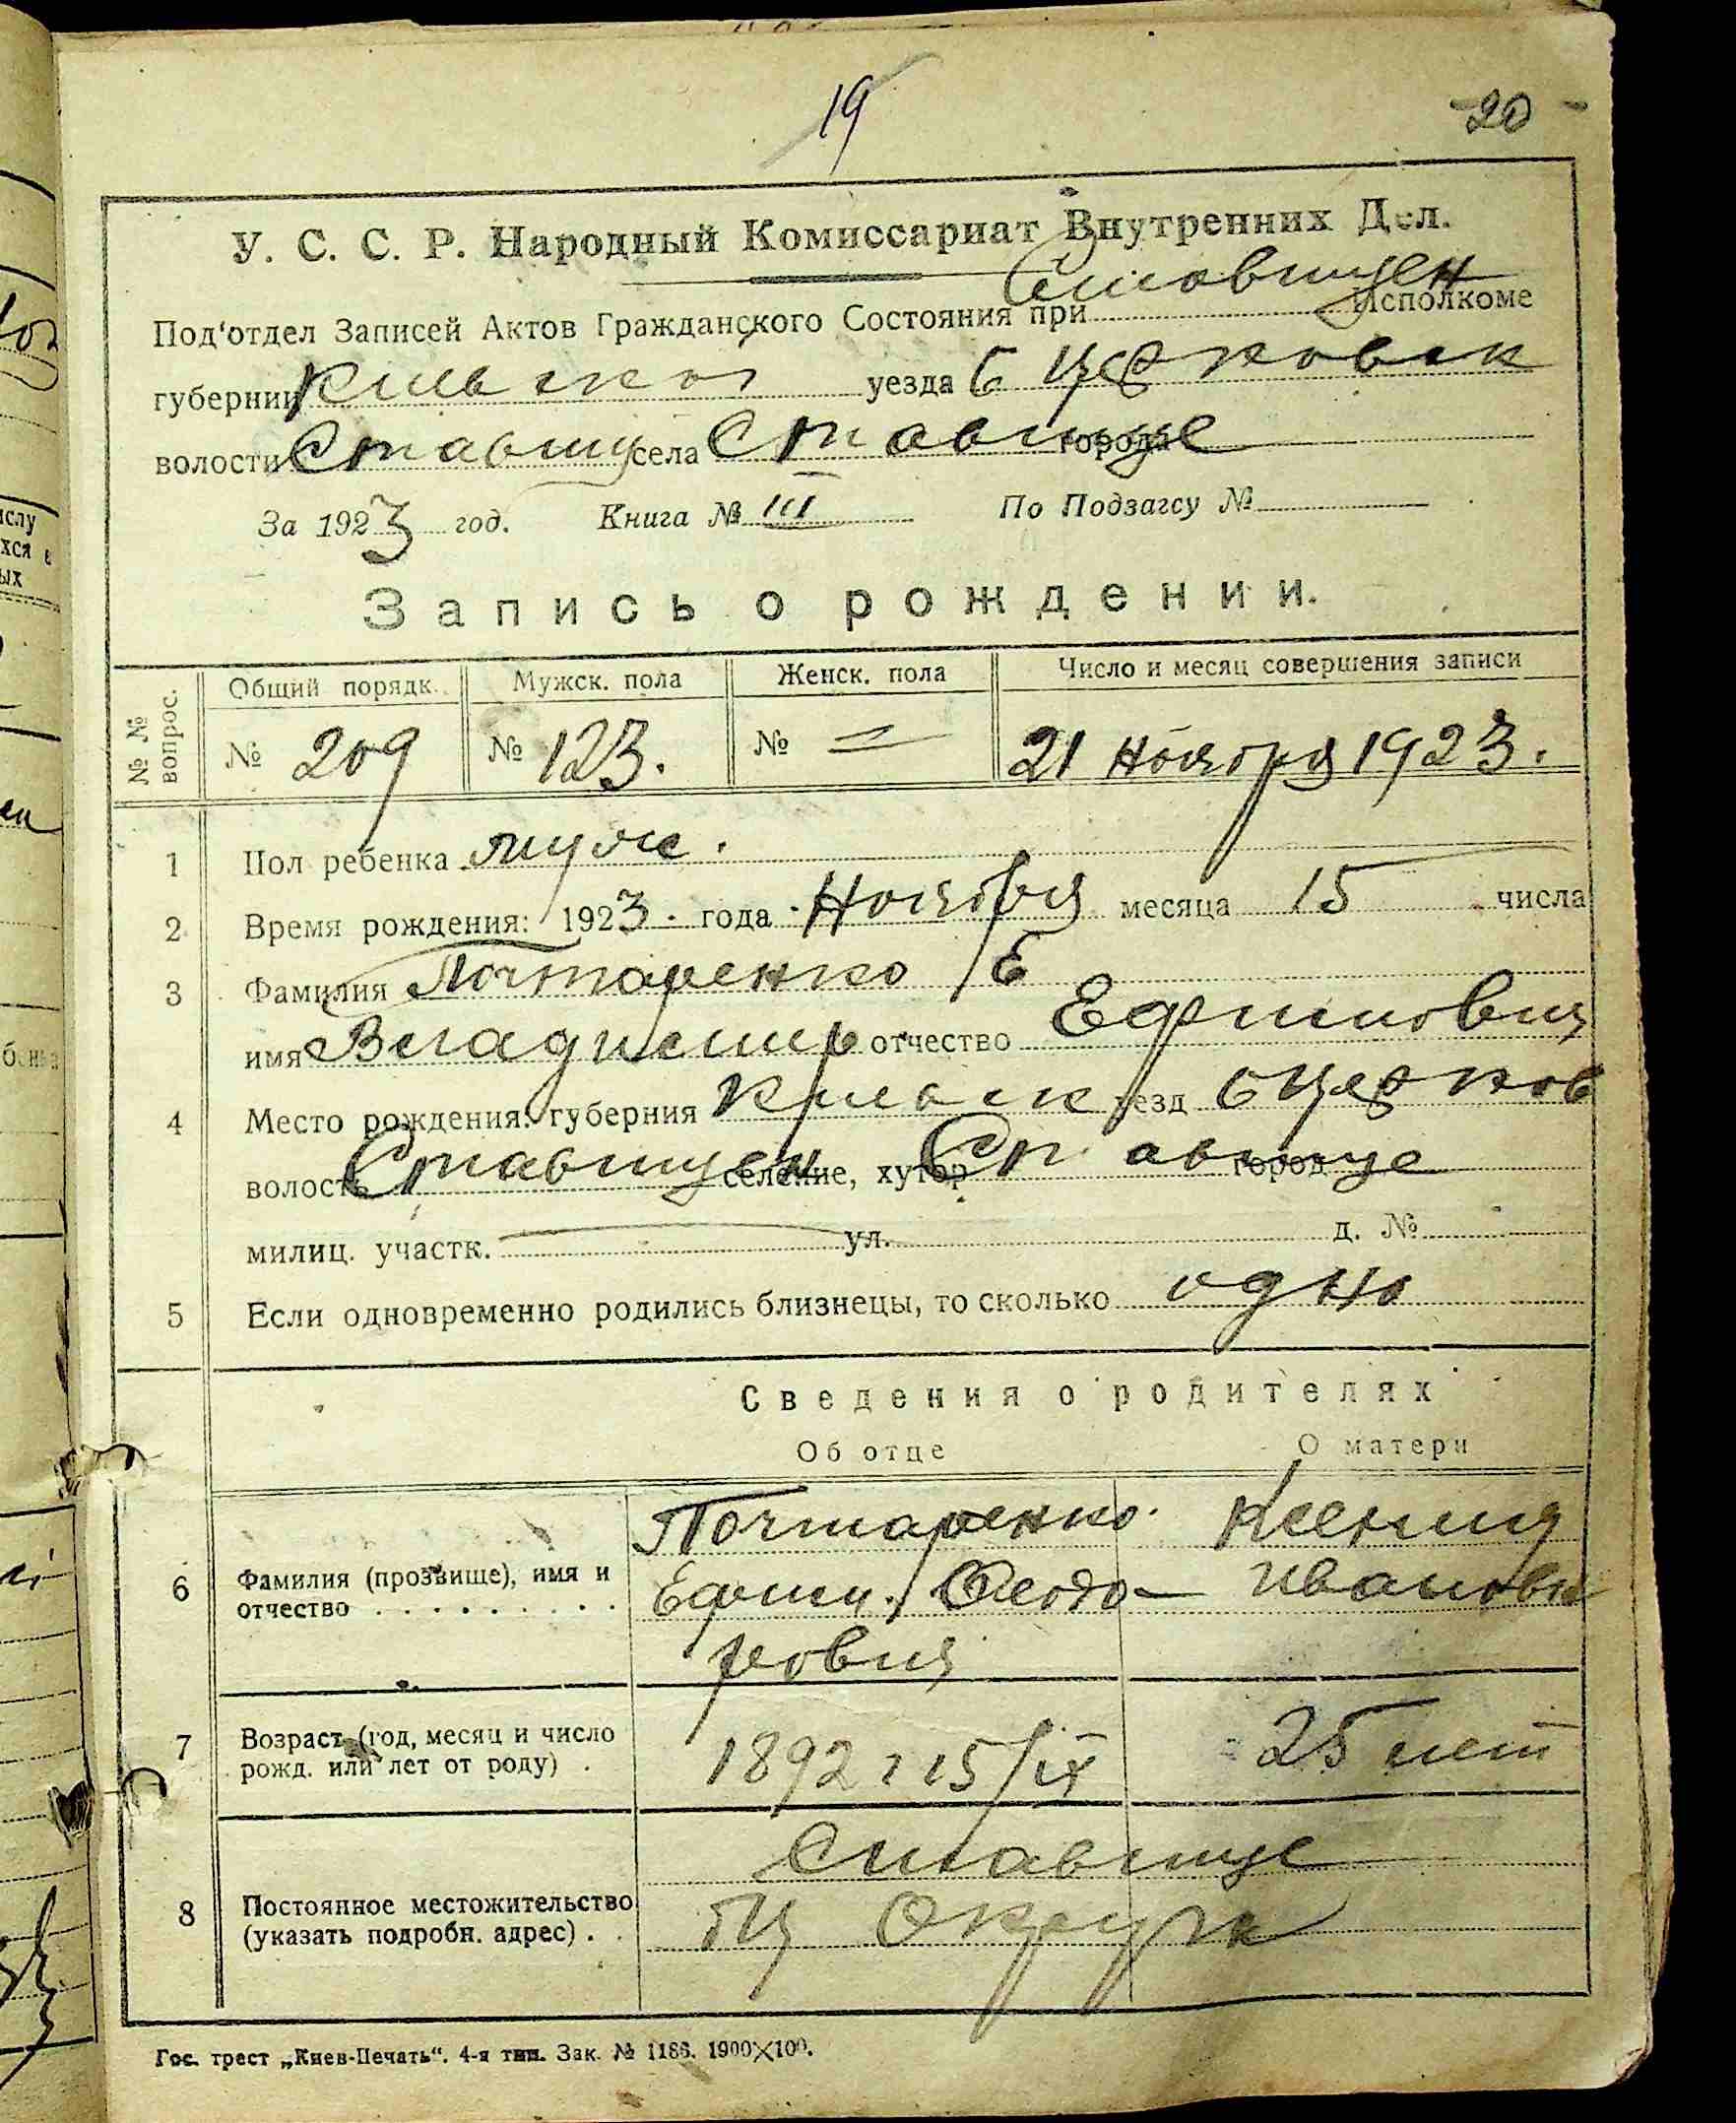 19
20
У. С. С. Р. Народный Комиссариат Внутренних Дел.
Под'отдел Записей Актов Гражданского Состояния при Ставищен Исполкоме
губернии Киевской уезда Б Церковск
волости Ставищ села Ставище города
За 1923 год. Книга № III По Подзагсу №
Запись о рождении.
№ № вопрос. Общий порядк. Мужск. пола Женск. пола Число и месяц совершения записи
№ 209 № 123. № = 21 Ноября 1923.
1 Пол ребенка муж.
2 Время рождения: 1923 года Ноября месяца 15 числа
3 Фамилия Почтаренко
имя Владимир отчество Ефимович
4 Место рождения: губерния Киевск уезд Б Церков
волость Ставищен селение, хутор Ставище город
милиц. участк. ул. д. №
5 Если одновременно родились близнецы, то сколько одно
Сведения о родителях
Об отце О матери
Почтаренко Ксения
6 Фамилия (прозвище), имя и отчество Ефим. Феодо- Ивановн
рович
7 Возраст (год, месяц и число рожд. или лет от роду) 1892 г 15/IX 25 лет
Ставище
8 Постоянное местожительство (указать подробн. адрес) БЦ Округи
Гос. трест „Киев-Печать“. 4-я тип. Зак. № 1186. 1900×100.